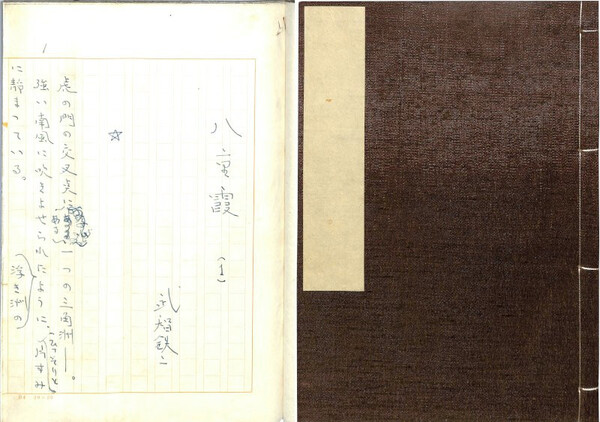 八重霞
(1)
武智鉄二
☆
虎の門の交叉点にある一つの三角洲——。
強い南風に吹きよせられた浮き洲のように、
に静まっている。
1